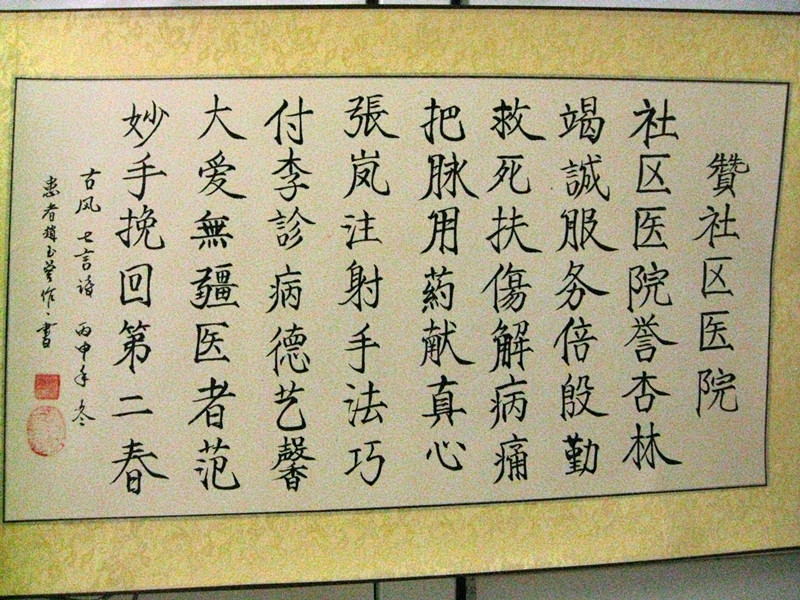 贊社区医院
社区医院誉杏林
竭誠服务倍殷勤
救死扶傷解病痛
把脉用药献真心
張岚注射手法巧
付李診病德艺馨
大爱無疆医者范
妙手挽回第二春
古风 七言诗 丙申年冬
患者趙玉莹作、書